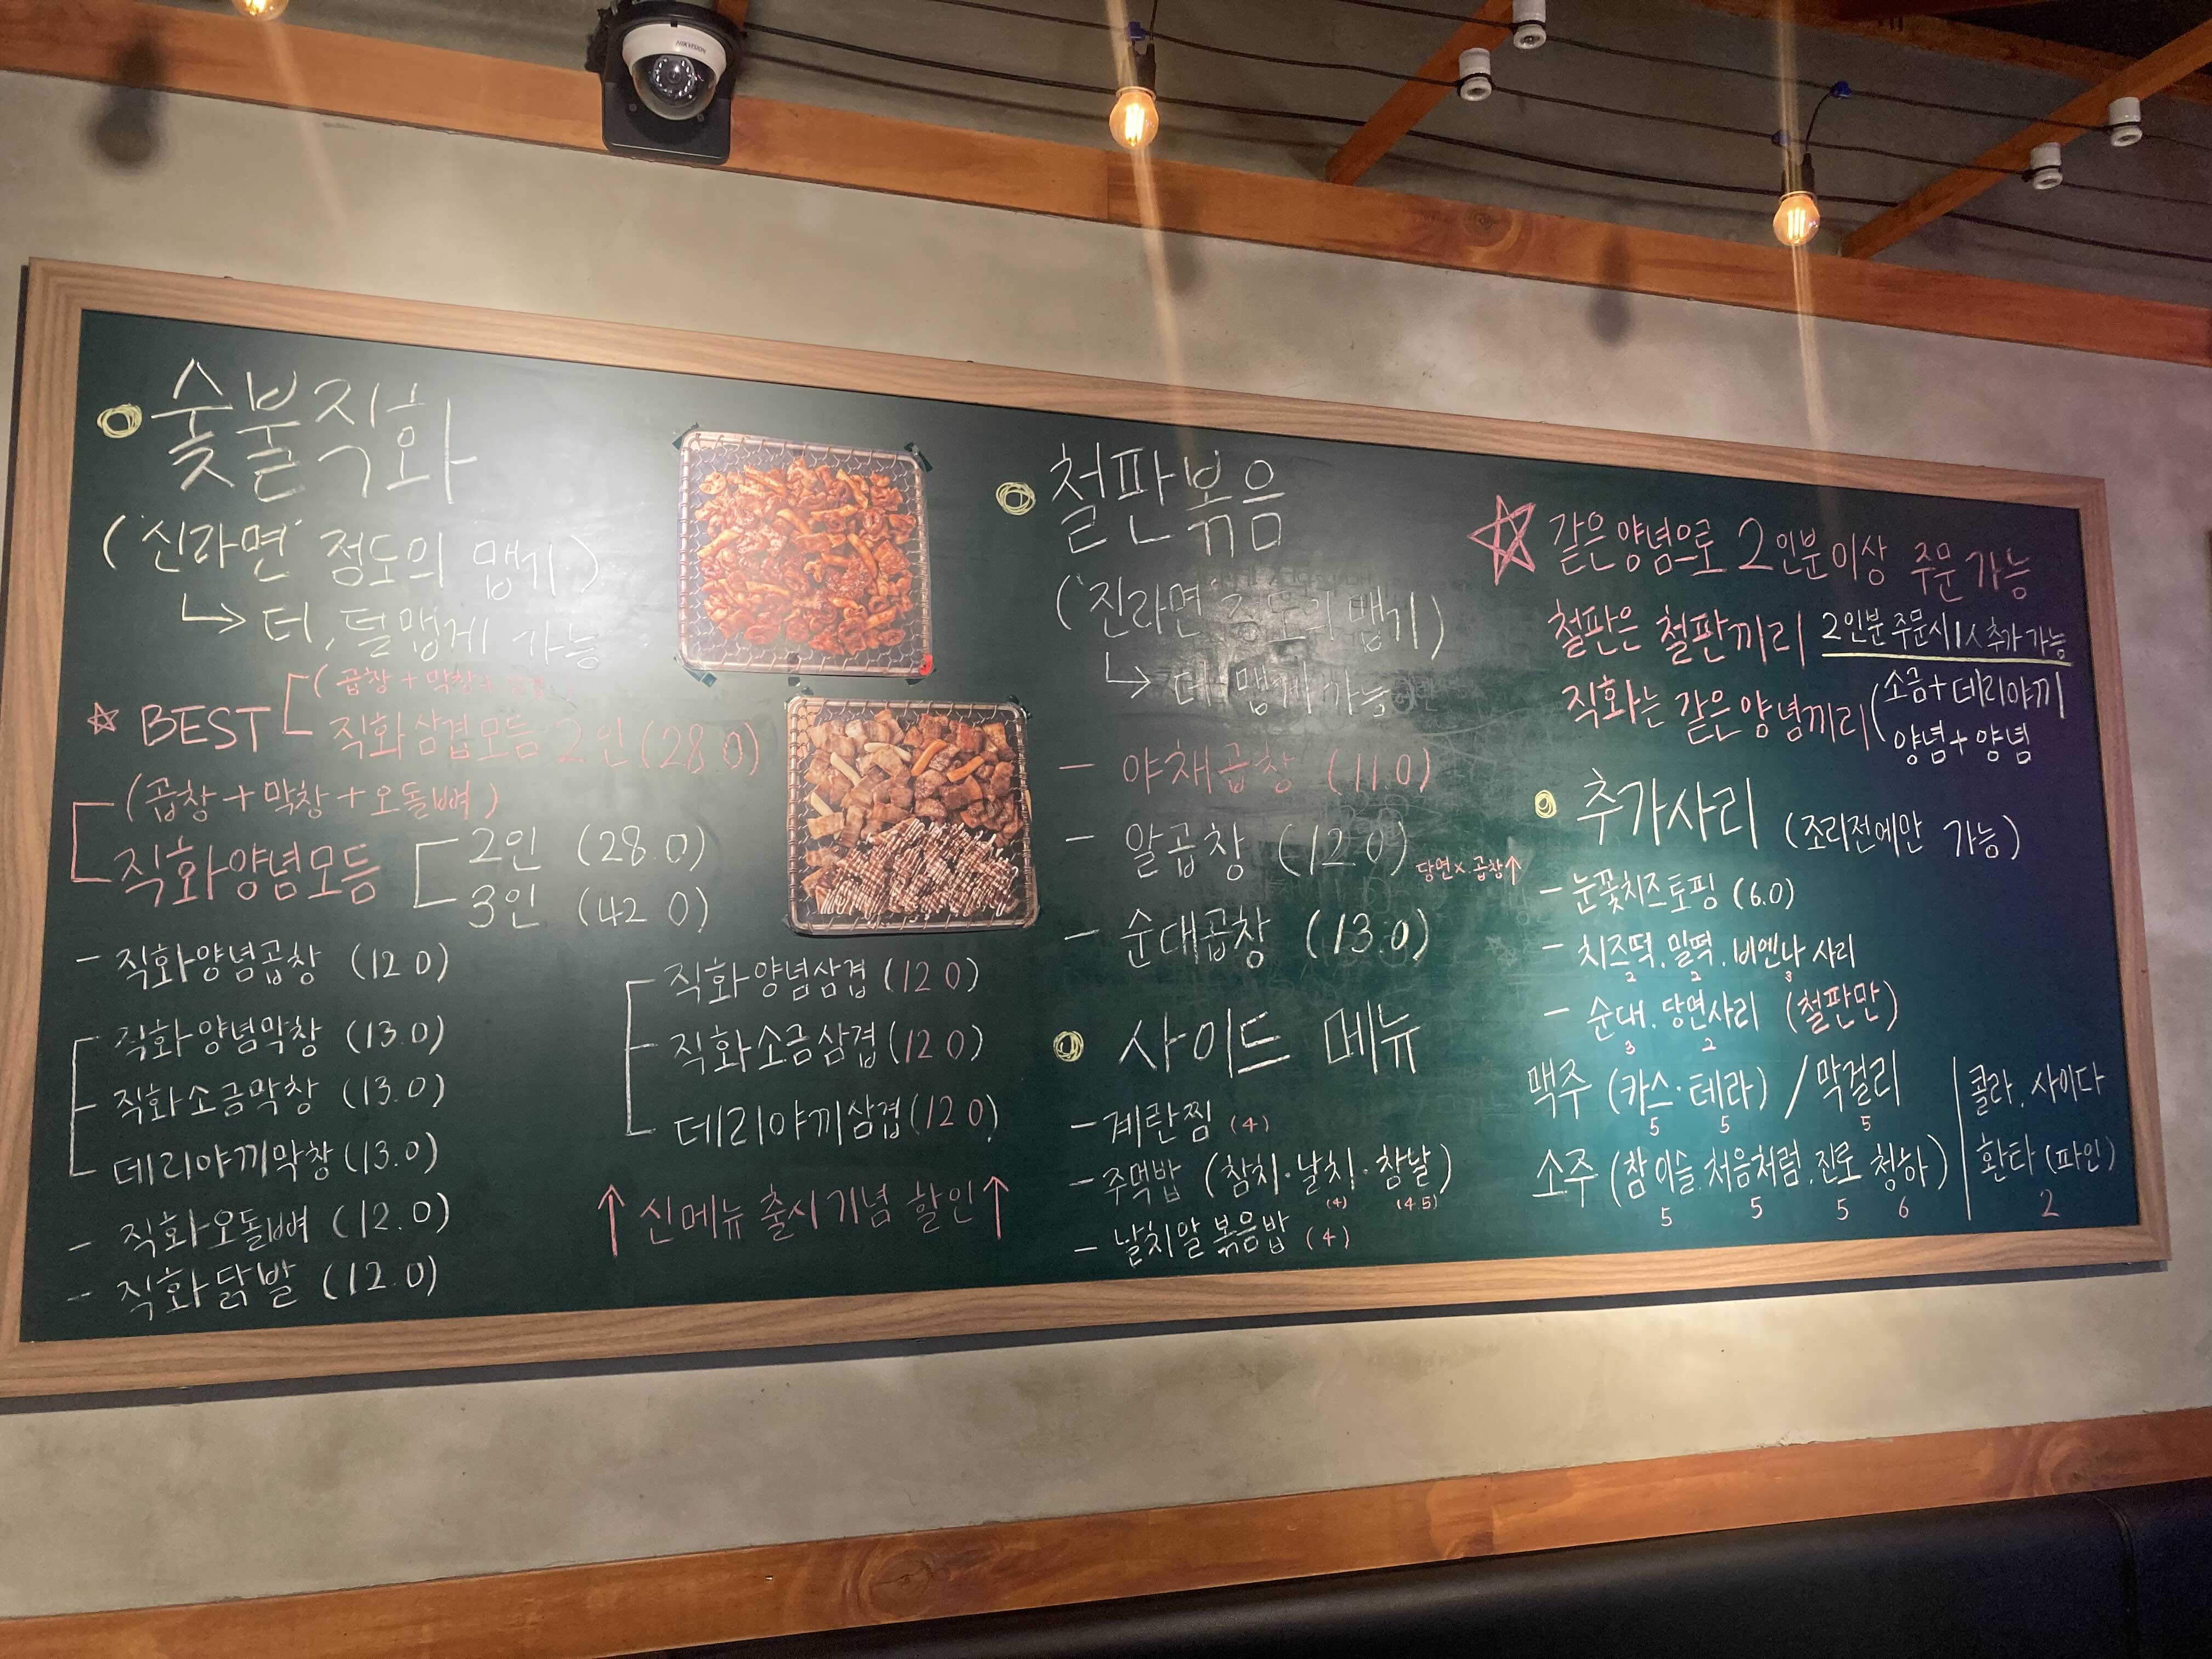 HIKVISION
숯불직화
("신라면" 정도의 맵기)
↳ 더, 덜맵게 가능
(곱창 + 막창 +
☆ BEST 직화삼겹모듬 2인 (28.0)
(곱창 + 막창 + 오돌뼈)
직화양념모듬
2인 (28.0)
3인 (42.0)
- 직화양념곱창 (12.0)
직화양념막창 (13.0)
직화소금막창 (13.0)
데리야끼막창 (13.0)
- 직화오돌뼈 (12.0)
- 직화닭발 (12.0)
직화양념삼겹 (12.0)
직화소금삼겹 (12.0)
데리야끼삼겹 (12.0)
↑ 신메뉴 출시기념 할인 ↑
철판볶음
("진라면" 정도의 맵기)
↳ 더 맵게 가능
- 야채곱창 (11.0)
- 알곱창 (12.0) 당면x.곱창↑
- 순대곱창 (13.0)
사이드 메뉴
- 계란찜 (4)
- 주먹밥 (참치·날치·참날)
(4) (4.5)
- 날치알 볶음밥 (4)
☆ 같은양념으로 2인분이상 주문가능
철판은 철판끼리 2인분 주문시 1人 추가 가능
직화는 같은양념끼리 (소금+데리야끼
양념+양념
추가사리 (조리전에만 가능)
- 눈꽃치즈토핑 (6.0)
- 치즈떡. 밀떡. 비엔나 사리
2 2 3
- 순대. 당면사리 (철판만)
3 2
맥주 (카스·테라) / 막걸리
5 5 5
소주 (참이슬.처음처럼.진로 청하)
5 5 5 6
콜라. 사이다
환타 (파인)
2